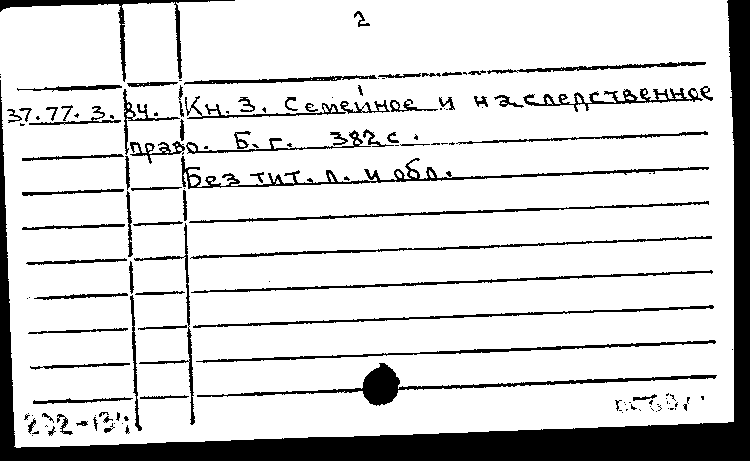 2
37.77.3.84. Кн. 3. Семейное и наследственное
право. Б.г. 382 с.
Без тит. л. и обл.